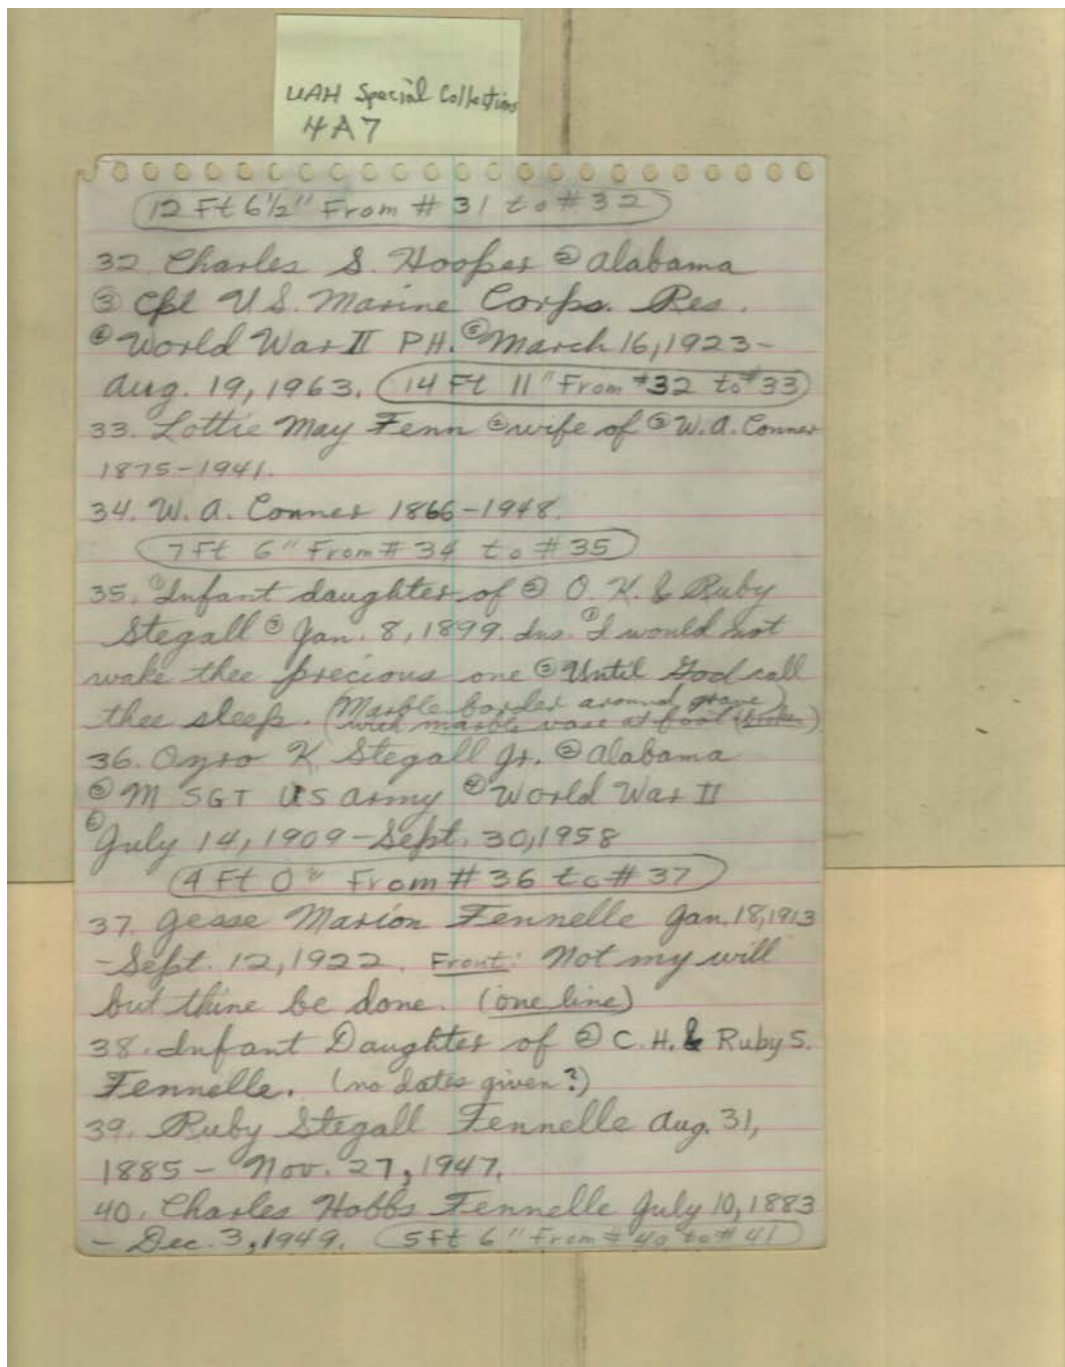 UAH Special Collections
4A7
12 Ft 6½" From # 31 to # 32
32. Charles S. Hooper ② Alabama
③ Cpl U.S. Marine Corps. Res.
④ World War II PH. ⑤ March 16, 1923-
Aug. 19, 1963. (14 Ft 11" From #32 to #33)
33. Lottie May Fenn ② wife of ③ W.A. Conner
1875-1941.
34. W. A. Conner 1866-1948.
7 Ft 6" From # 34 to # 35
35. ① Infant daughter of ② O. K. & Ruby
Stegall ③ Jan. 8, 1899. Ins. ① I would not
wake thee precious one ② Until God call
thee sleep. (Marble border around grave
with marble vase at foot (broken)
36. Ozro K Stegall Jr. ② Alabama
③ M SGT US Army ④ World War II
⑤ July 14, 1909 - Sept. 30, 1958
4 Ft 0" From # 36 to # 37
37. Jesse Marion Fennelle Jan. 18, 1913
- Sept. 12, 1922. Front: Not my will
but thine be done. (one line)
38. Infant Daughter of ② C. H. & Ruby S.
Fennelle. (no dates given?)
39. Ruby Stegall Fennelle Aug. 31,
1885 - Nov. 27, 1947.
40. Charles Hobbs Fennelle July 10, 1883
- Dec. 3, 1949. (5 Ft 6" From # 40 to # 41)